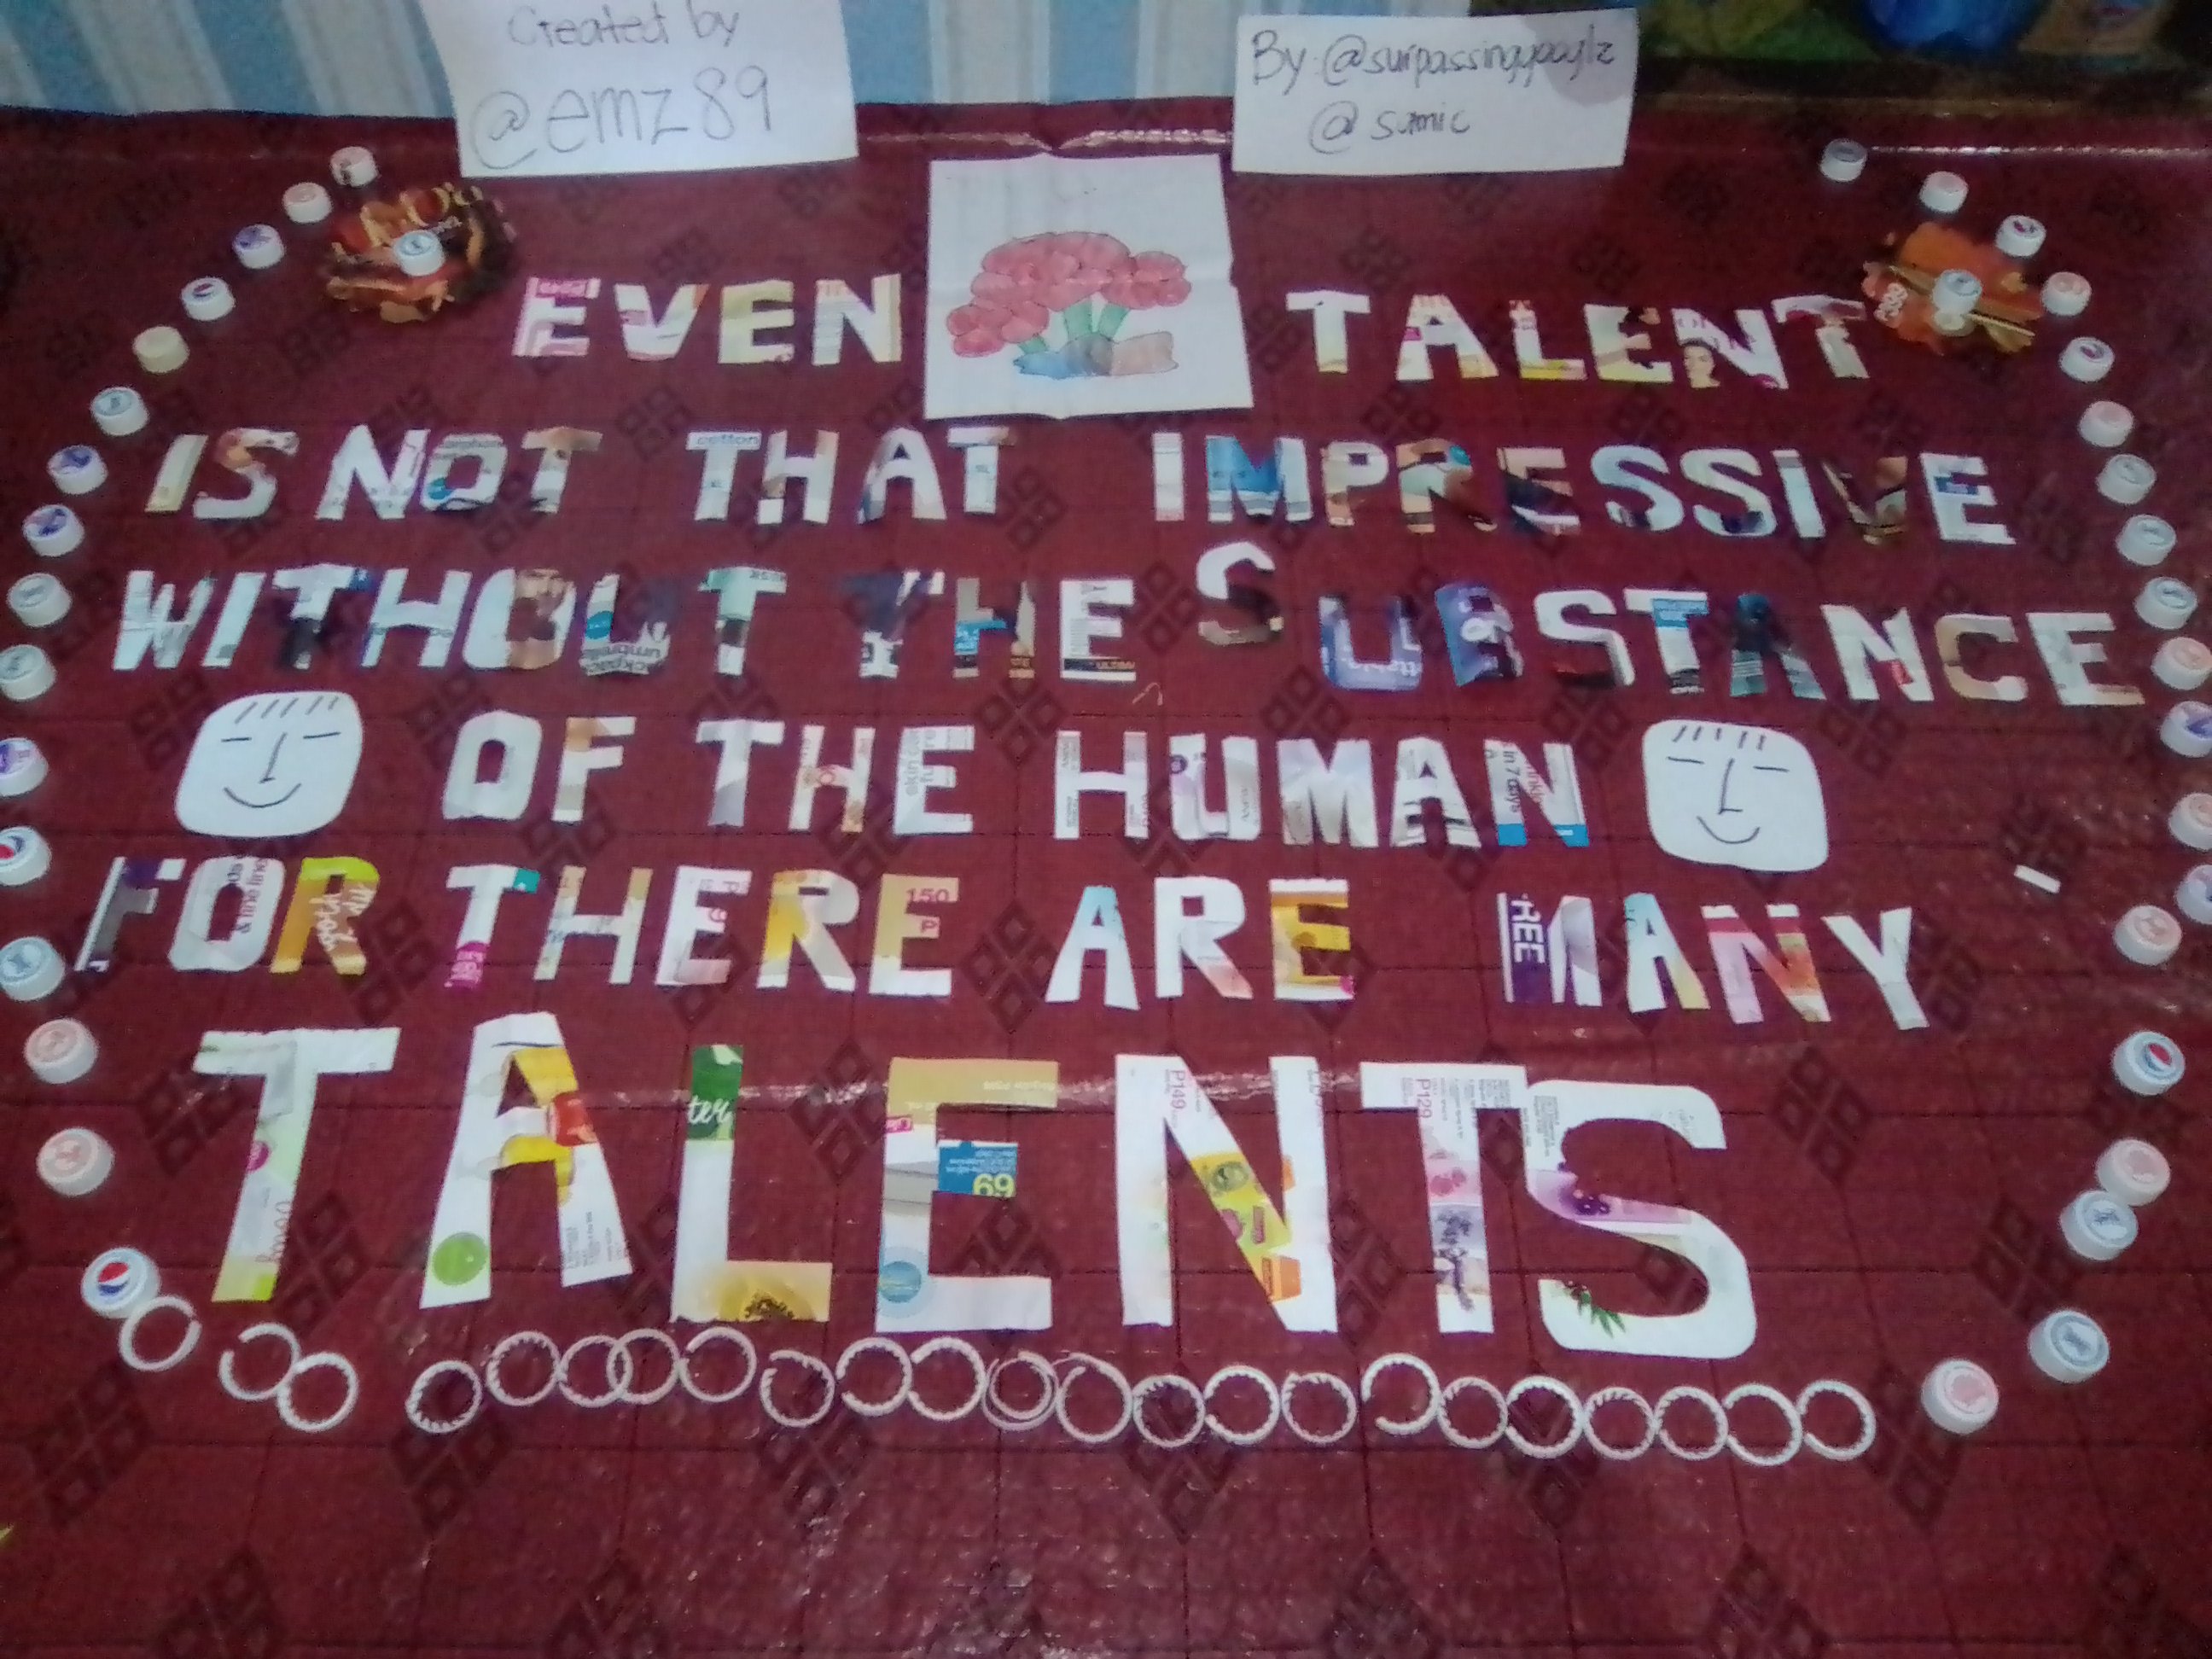 Created by
@emz89
By: @surpassinggoogle
@sumic
EVEN TALENT
IS NOT THAT IMPRESSIVE
WITHOUT THE SUBSTANCE
OF THE HUMAN
FOR THERE ARE MANY
TALENTS